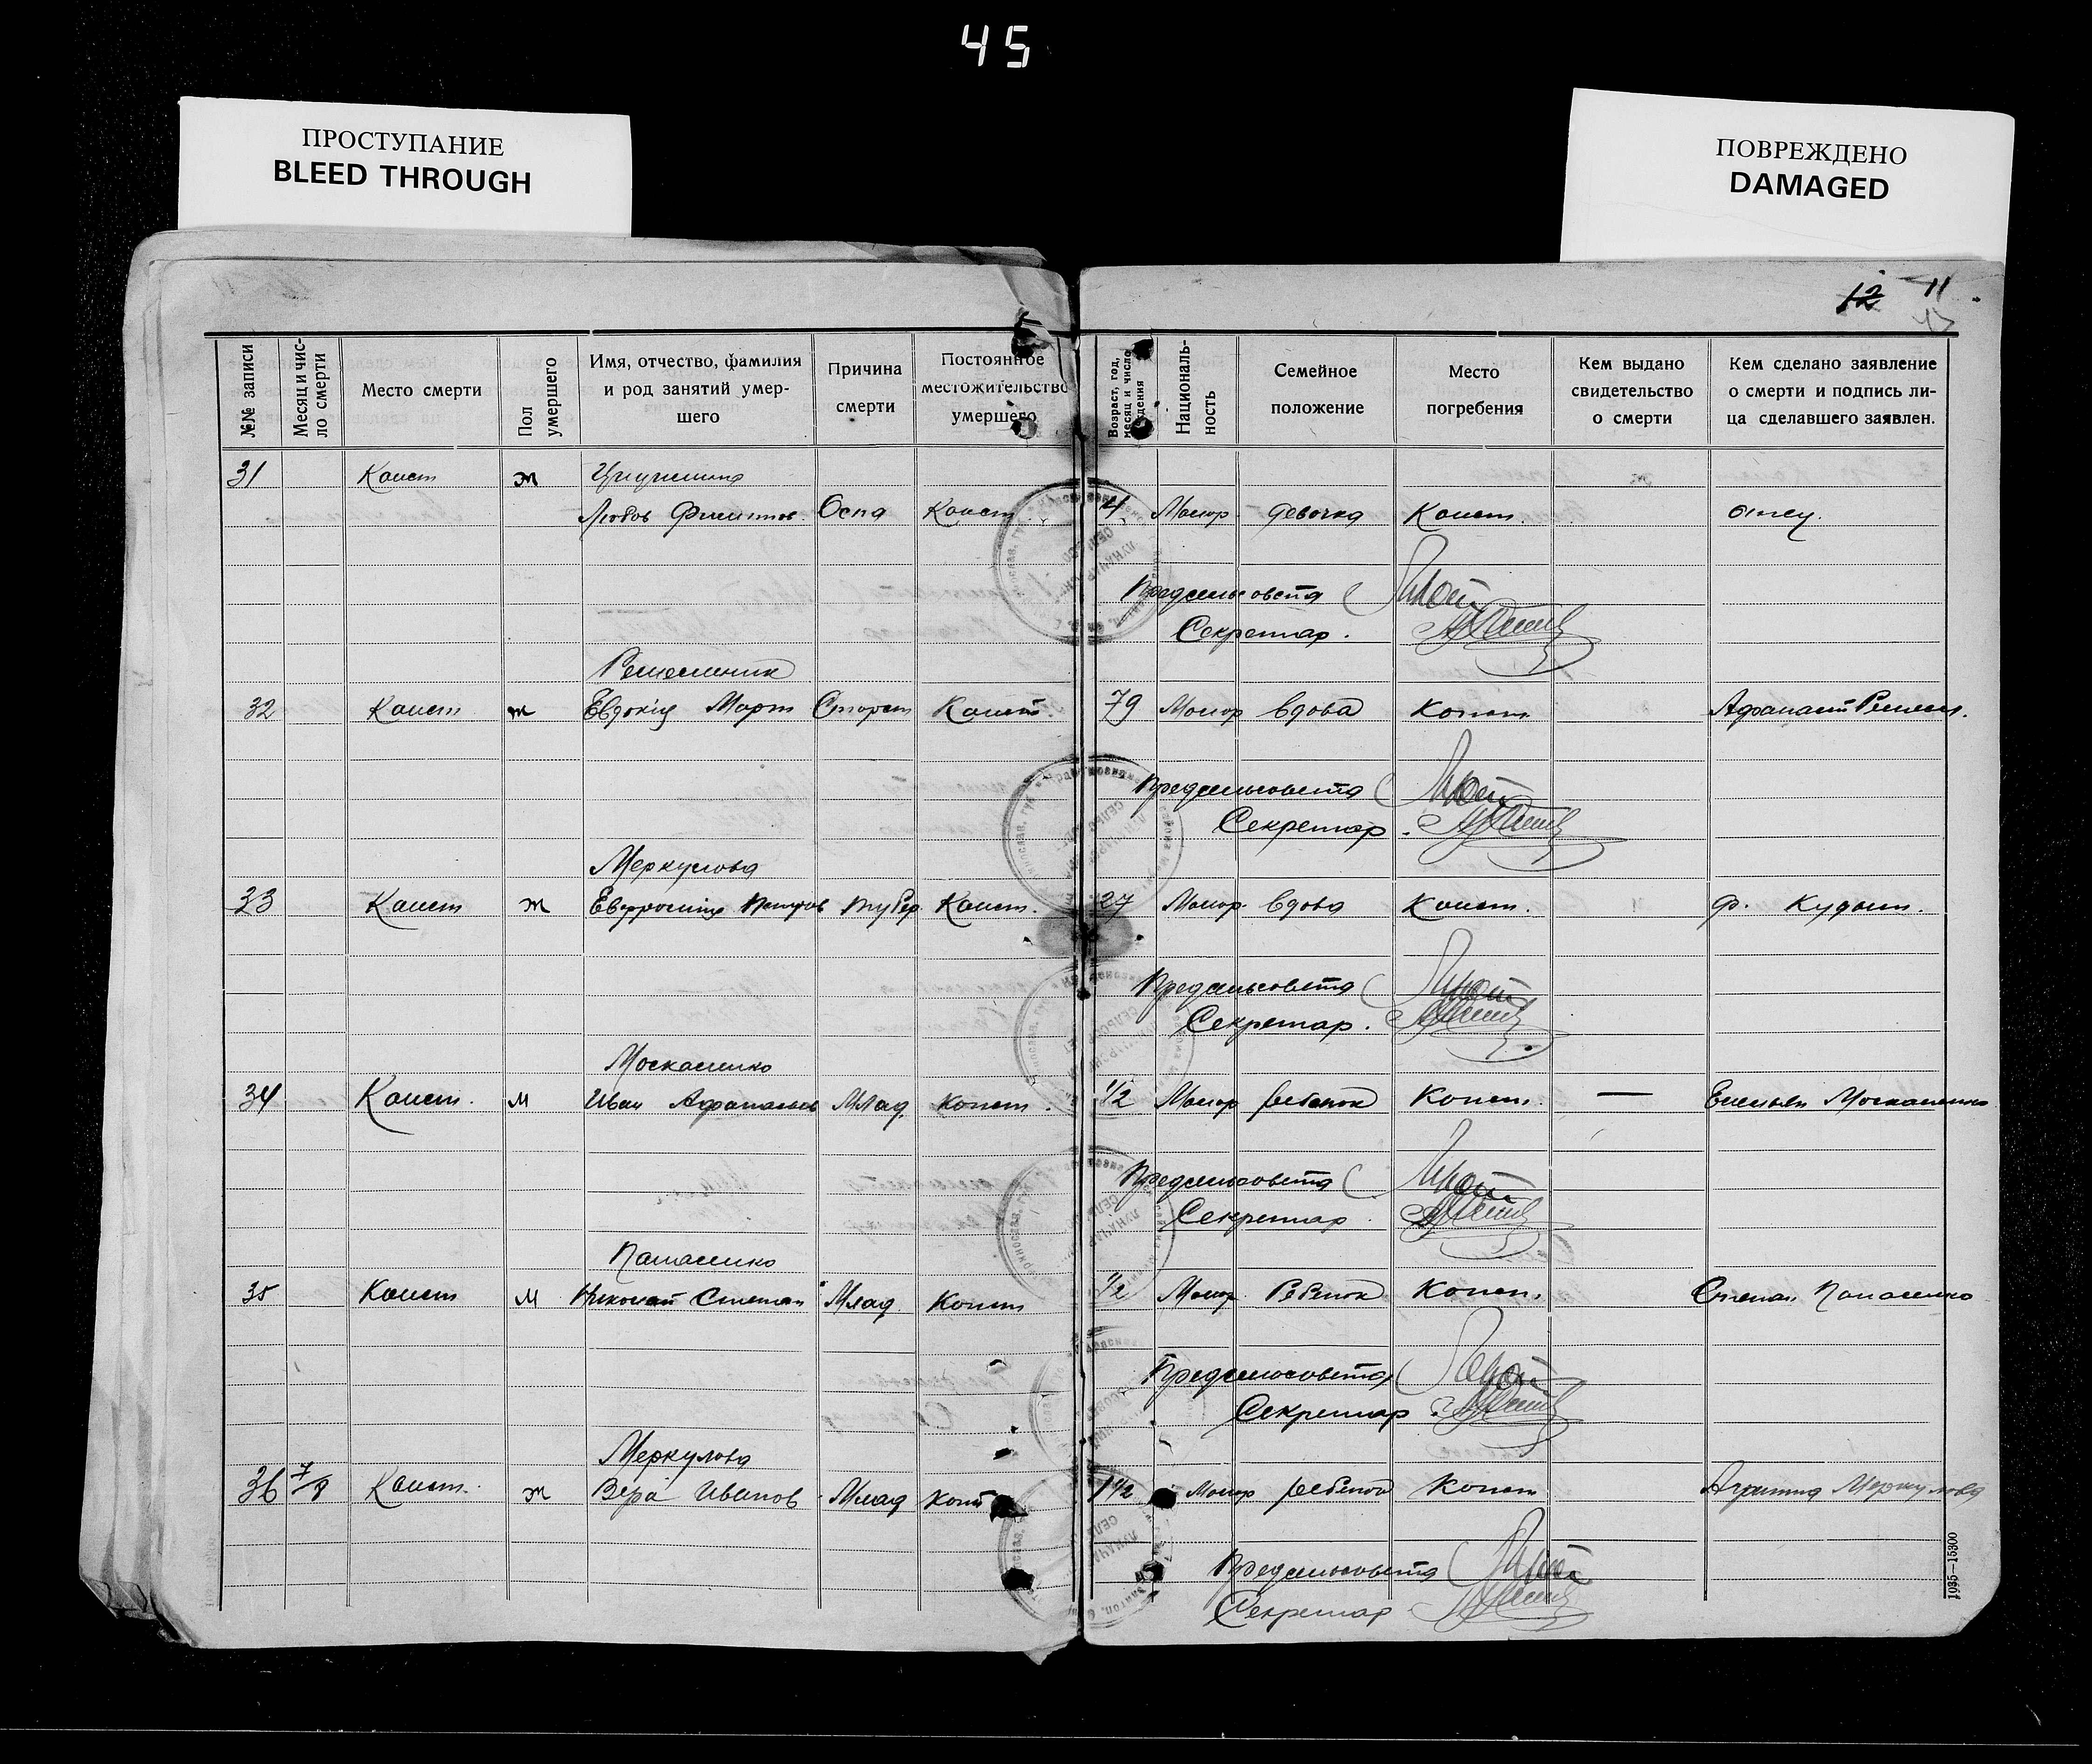 45
ПРОСТУПАНИЕ
BLEED THROUGH
ПОВРЕЖДЕНО
DAMAGED
12 11
№№ записи
Месяц и чис-
ло смерти
Место смерти
Пол
умершего
Имя, отчество, фамилия
и род занятий умер-
шего
Причина
смерти
Постоянное
местожительство
умершего
Возраст, год,
месяц и число
рождения
Националь-
ность
Семейное
положение
Место
погребения
Кем выдано
свидетельство
о смерти
Кем сделано заявление
о смерти и подпись ли-
ца сделавшего заявлен.
31 Конст ж
Любов Филиппов. Оспа Конст 4 Малор. девочка Конст. отец.
Предсельсовета
Секретар.
32 Конст ж Евдокия Март Старост Конст. 79 Малор вдова Конст.
Предсельсовета
Секретар.
Меркулова
33 Конст ж тубер. Конст. 27 Малор. вдова Конст. Ф.
Предсельсовета
Секретар.
Москаленко
34 Конст. м Иван Афанасьев Млад. Конст. 1/2 Малор ребенок Конст. — Емельян Москаленко
Предсельсовета
Секретар
Панасенко
35 Конст м Николай Степан Млад. Конст 1/2 Малор. Ребенок Конст. Степан Панасенко
Предсельсовета
Секретар.
Меркулова
36 7/8 Конст. ж Вера Иванов Млад Конст 1 1/2 Малор ребенок Конст Меркулова
Предсельсовета
Секретар
1935—15300